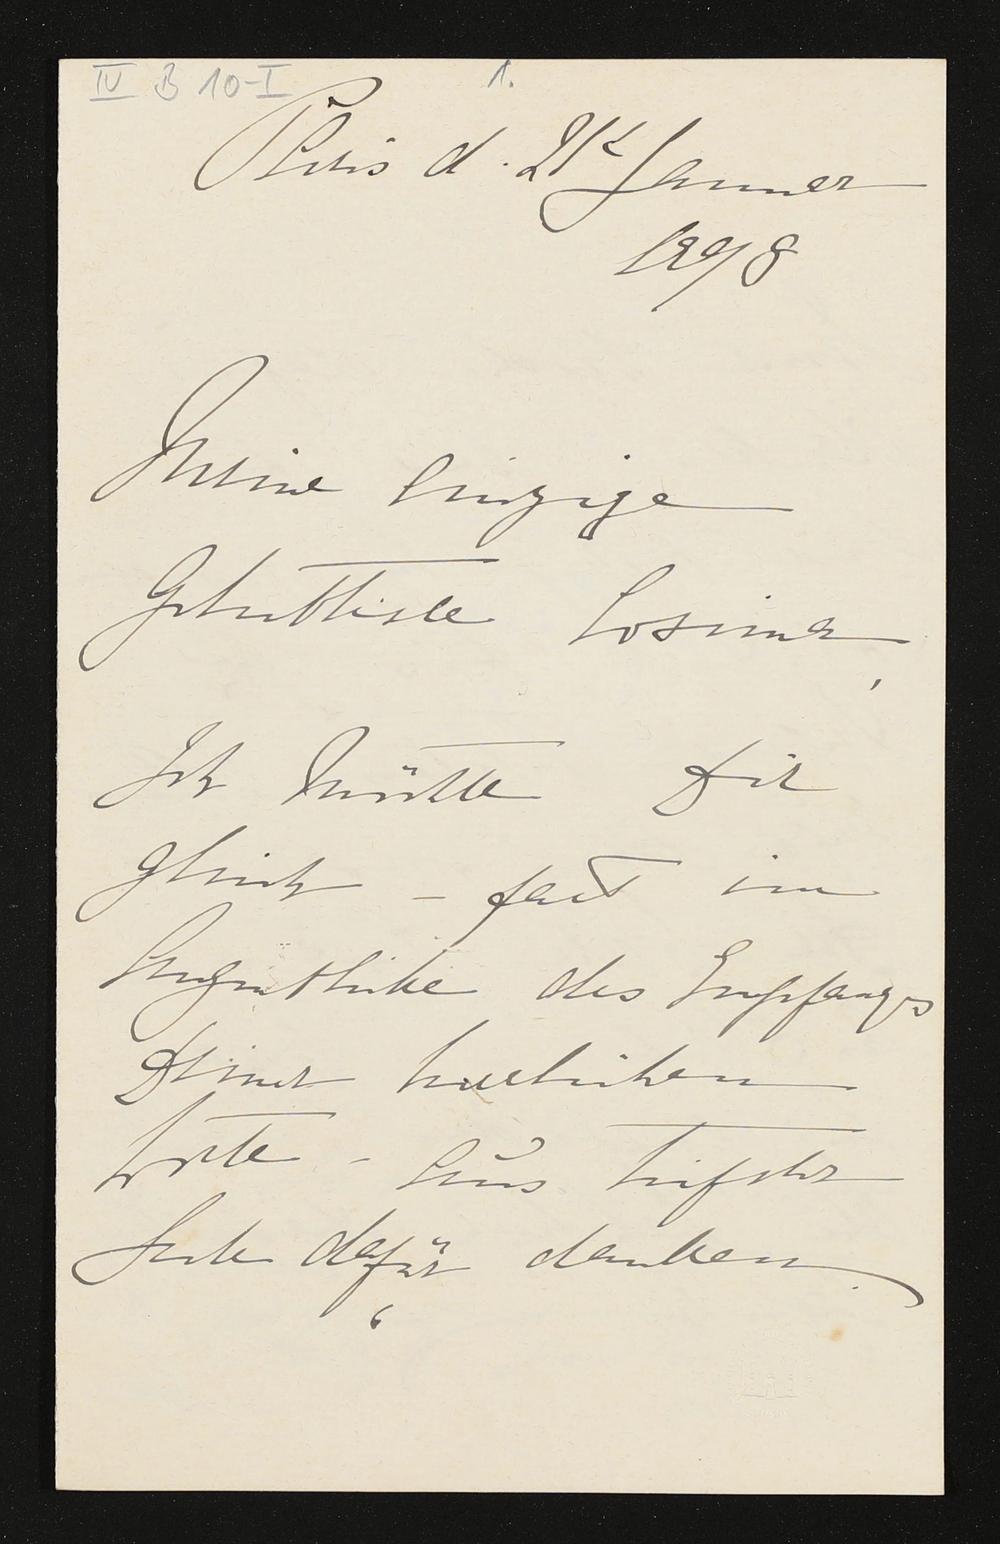 IV B 10-I
1.
Paris d. 21t Januar
1898
Meine einzige
Geliebteste Cosima,
Ich möchte Dir
gleich - fast im
Augenblicke des Empfanges
Deiner herrlichen
Worte - aus tiefster
Seele dafür danken.
6